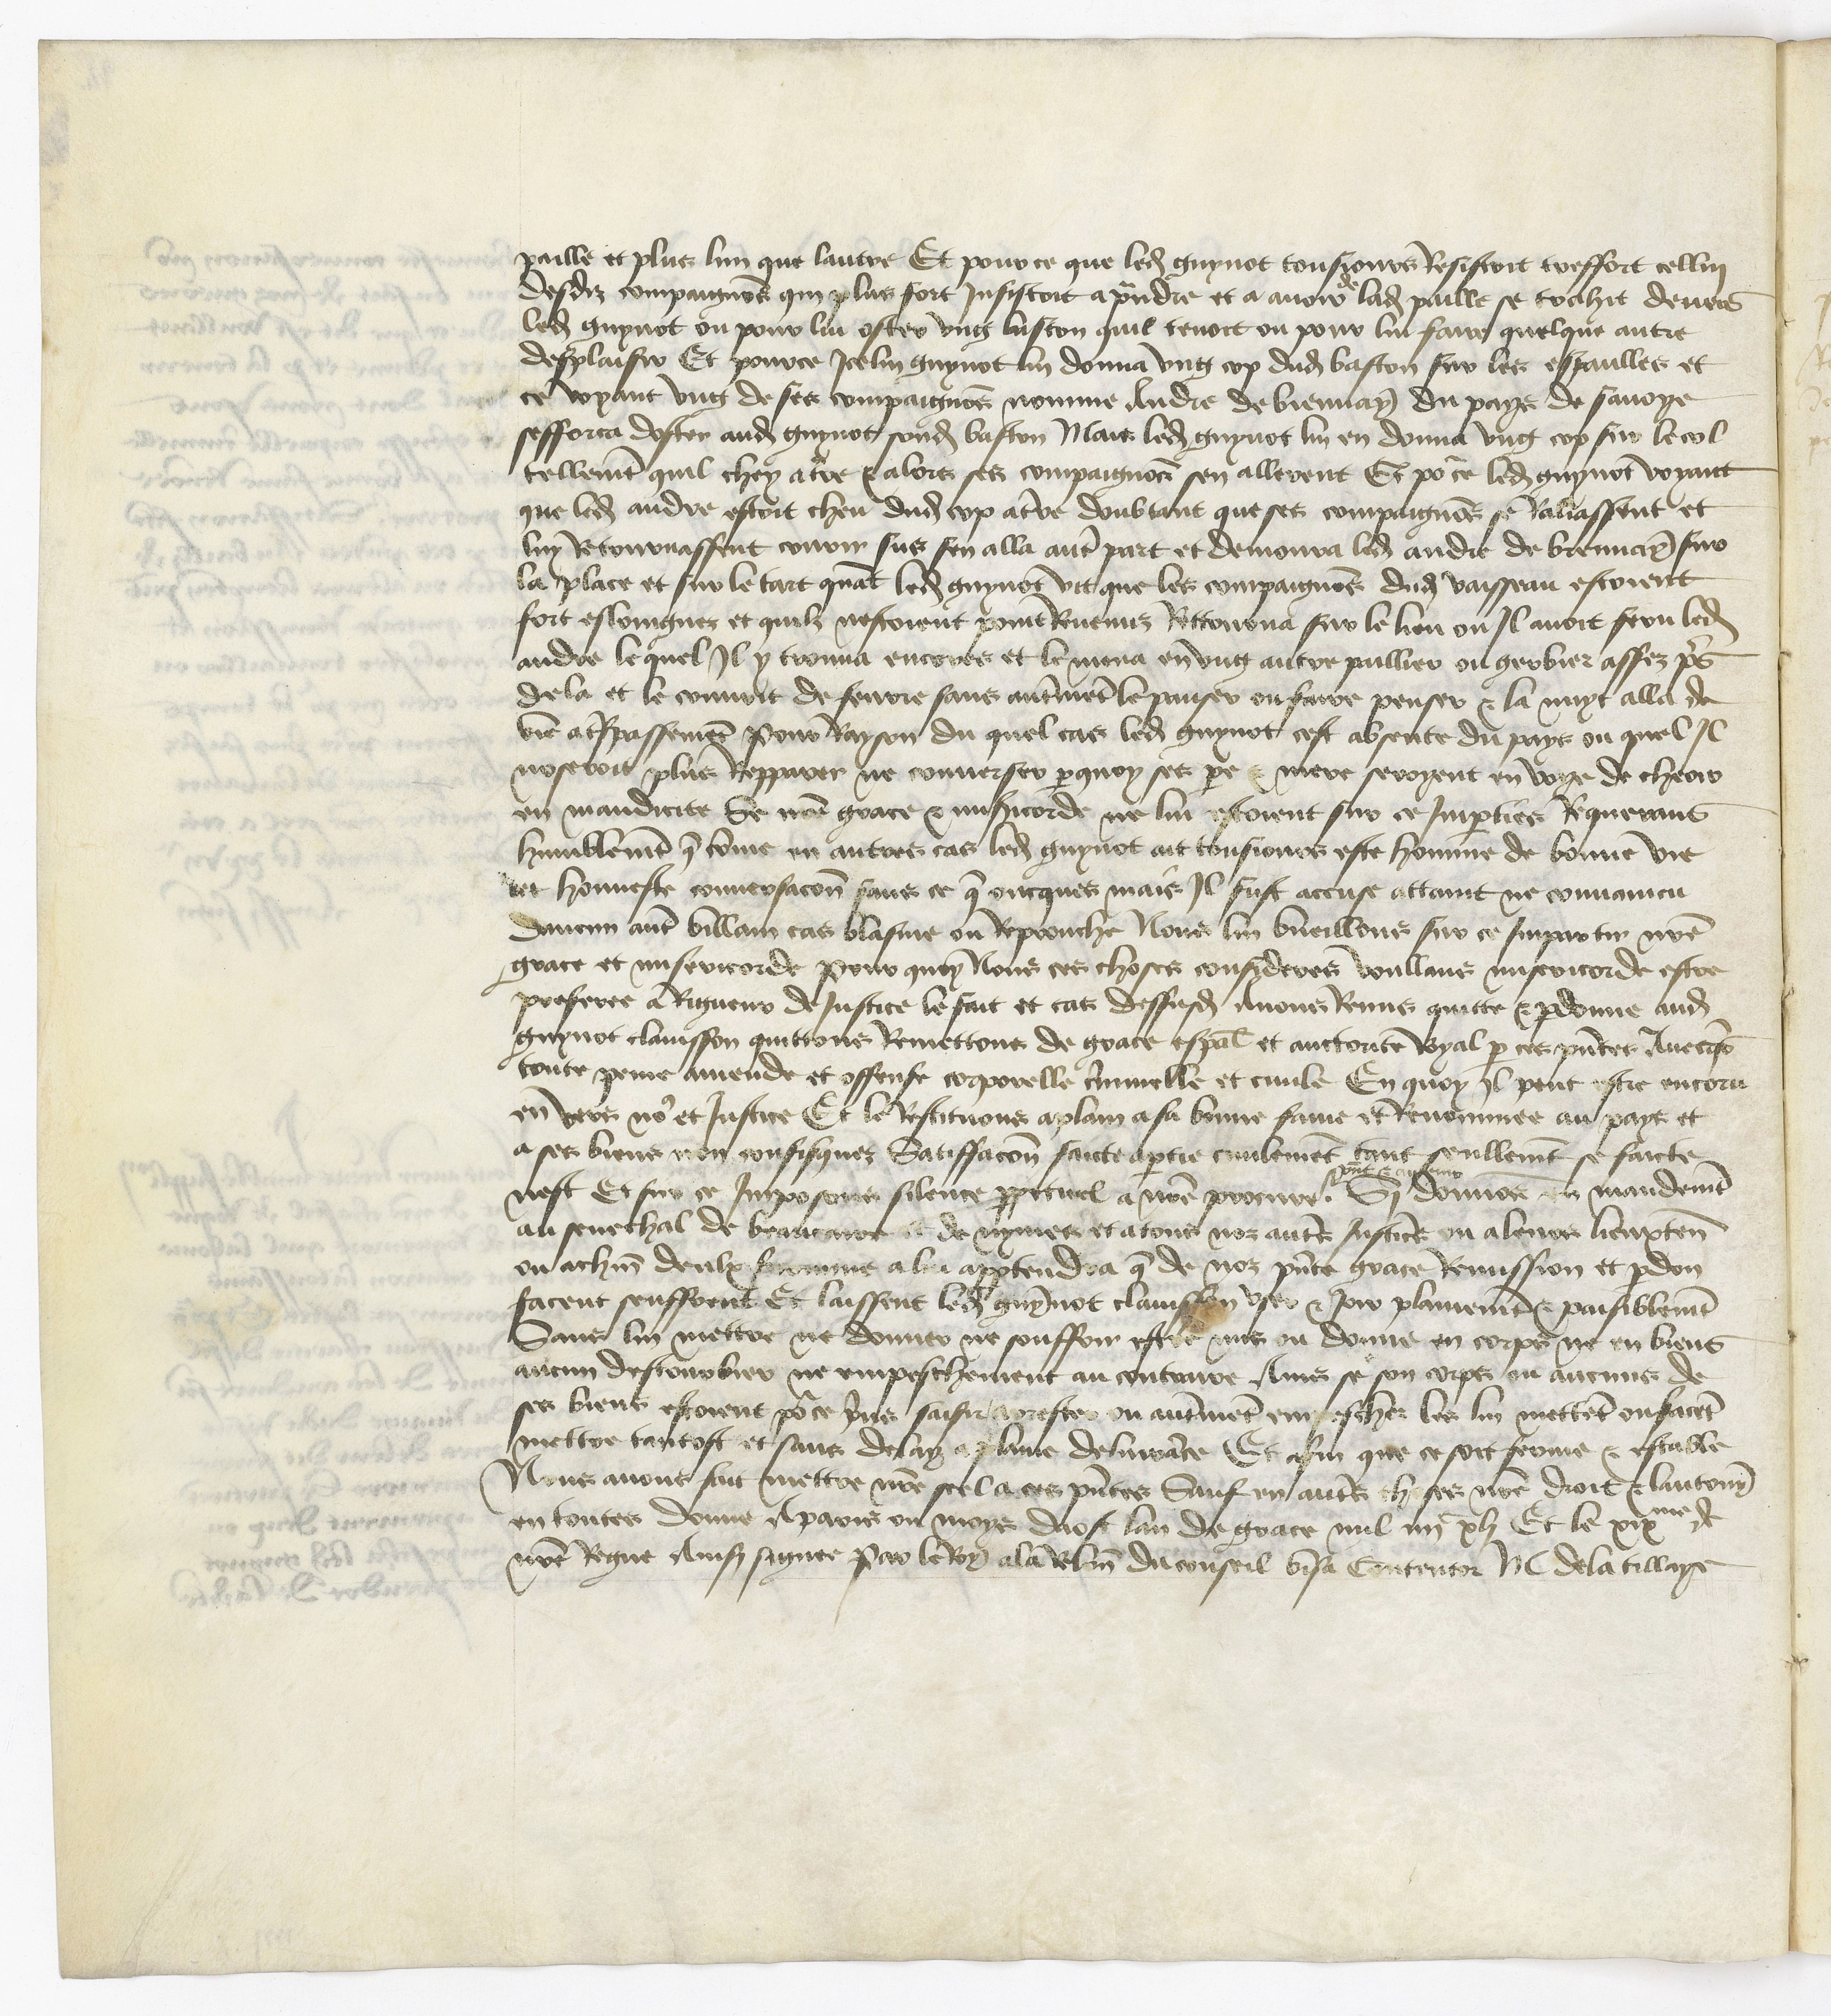 paille et plus lun que lautre Et pource que led guynot tousiours Resistoit treffort cellui
desdiz compaignõs qui plus fort Insistoit a pñdre et a auoir de lad paille se trahit deuers
led guynot ou pour lui oster vng baston quil tenoit ou pour lui faire quelque autre
desplaisir Et pource Icelui guynot lui donna vng cop dud baston sur les espaulles et
ce voyant vng de ses compaignõs nomme Andre de biennay du pays de sauoye
sefforca doster aud guynot soud baston Mais led guynot lui en donna vng cop sur le col
tellemt quil chey atre & alors ses compaignõs sen allerent Et po ce led guynot voyant
que led andre estoit cheu dud cop atre doubtant que ses compaignõs se Raliassent et
luy Retournassent courir sus sen alla aut part et demoura led andre de biennay sur
la place et sur le tart quãt led guynot vit que les compaignõs dud vaisseau estoient
fort esloingnez et quilz nestoient point Reuenuz Retourna sur le lieu ou Il auoit feru led
andre lequel Il y trouua encores et le mena en vng autre paillier ou gerbier assez ps
dela et le couurit de feurre sans autmẽt le panser ou faire penser & la nuyt alla de
vie a trspassemẽt Pour Rayson du quel cas led guynot cest absente du pays ou quel Il
noseroit plus Repparer ne conuerser pquoy ses pe & mere seroyent en voye de cheoir
en mandicite Se nrẽ grace & mis̃icorde ne lui estoient sur ce Impties Requerans
humblemt q̃ cõme en autres cas led guynot ait tousiours este homme de bonne vie
et honneste conuersacoñ sans ce q̃ oncques mais Il fust accuse attaint ne conuaincu
daucun aut villain cas blasme ou Reprouche Nous lui vueillons sur ce Impartir nrẽ
grace et misericorde Pour quoy Nous ces choses considerees voullans misericorde estre
preferee a Rigueur de Iustice le fait et cas dessusd Auons Remis quitte & pdonne aud
guynot clauisson quittons Remettons de grace espal et auctorite Royal p ces pñtes Auecqs
toute peine amende et offense corporelle c̃iminelle et ciuile En quoy Il peut estre encoru
en vers no et Iustice Et le Restituons aplain a sa bonne fame et Renommee au pays et
a ses biens non confisquez Satisfacoñ faicte aptie ciuilemẽt tant seullemt se faicte
nest Et sur ce Imposons silence ppetuel a nrẽ procureur Si donnons en mandemt
pñt & auenir
au seneschal de beaucaire et de nymes et atous noz autrẽs Iusticiẽs ou aleurs lieuxteñ
ou achũ deulx si comme a lui apptendra q̃ de noz pñte grace Remission et pdon
facent seuffrent Et laissent led guynot clauisson vser & Ioir plainemẽt & paisiblemt
Sans lui mettre ne donner ne souffrir estre mis ou donne en corps ne en biens
aucun destourbier ne empeschement au contraire Ains se son corps ou aucuns de
ses biens estoient po ce pñs saisiz arrestez ou autmẽt empeschez les lui mettẽt ou facẽt
mettre tantost et sans delay aplaine deliurãce Et afin que ce soit ferme & estable
Nous auons fait mettre nrẽ scel a ces pñtes Sauf en autrẽs choses nrẽ droit & lautruy
en toutes Donne A paris ou moys daost lan de grace mil iiijc xlj Et le xixme de
nrẽ Regne Ainsi signee Par le Roy ala Relacõ du conseil Visa Contentor M de la tillaye